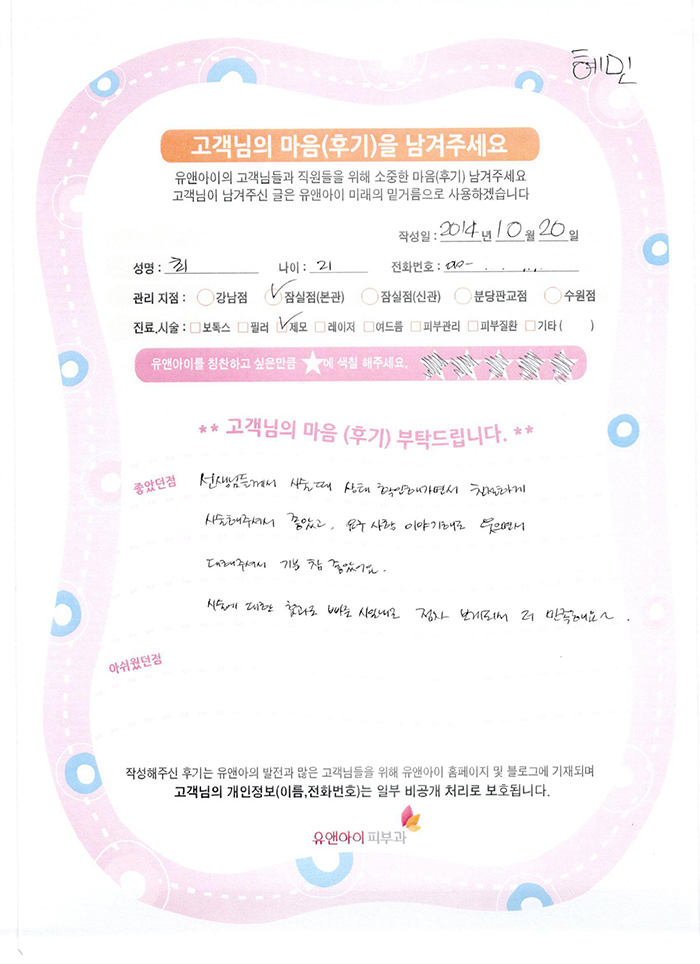 혜민
고객님의 마음(후기)을 남겨주세요
유앤아이의 고객님들과 직원들을 위해 소중한 마음(후기) 남겨주세요
고객님이 남겨주신 글은 유앤아이 미래의 밑거름으로 사용하겠습니다
작성일 : 2014 년 10 월 20 일
성명 : 최 나이 : 21 전화번호 : 010-
관리 지점 : 강남점 잠실점(본관) 잠실점(신관) 분당판교점 수원점
진료.시술 : 보톡스 필러 제모 레이저 여드름 피부관리 피부질환 기타 ( )
유앤아이를 칭찬하고 싶은만큼 ★에 색칠 해주세요.
** 고객님의 마음 (후기) 부탁드립니다. **
좋았던점 선생님들께서 시술때 상태 확인해가면서 친절하게
시술해주셔서 좋았고, 요구 사항 이야기해도 웃으면서
대해주셔서 기분 참 좋았어요.
시술에 대한 효과도 빠른 시일내로 점차 보게되어 더 만족해요~.
아쉬웠던점
작성해주신 후기는 유앤아의 발전과 많은 고객님들을 위해 유앤아이 홈페이지 및 블로그에 기재되며
고객님의 개인정보(이름,전화번호)는 일부 비공개 처리로 보호됩니다.
유앤아이 피부과